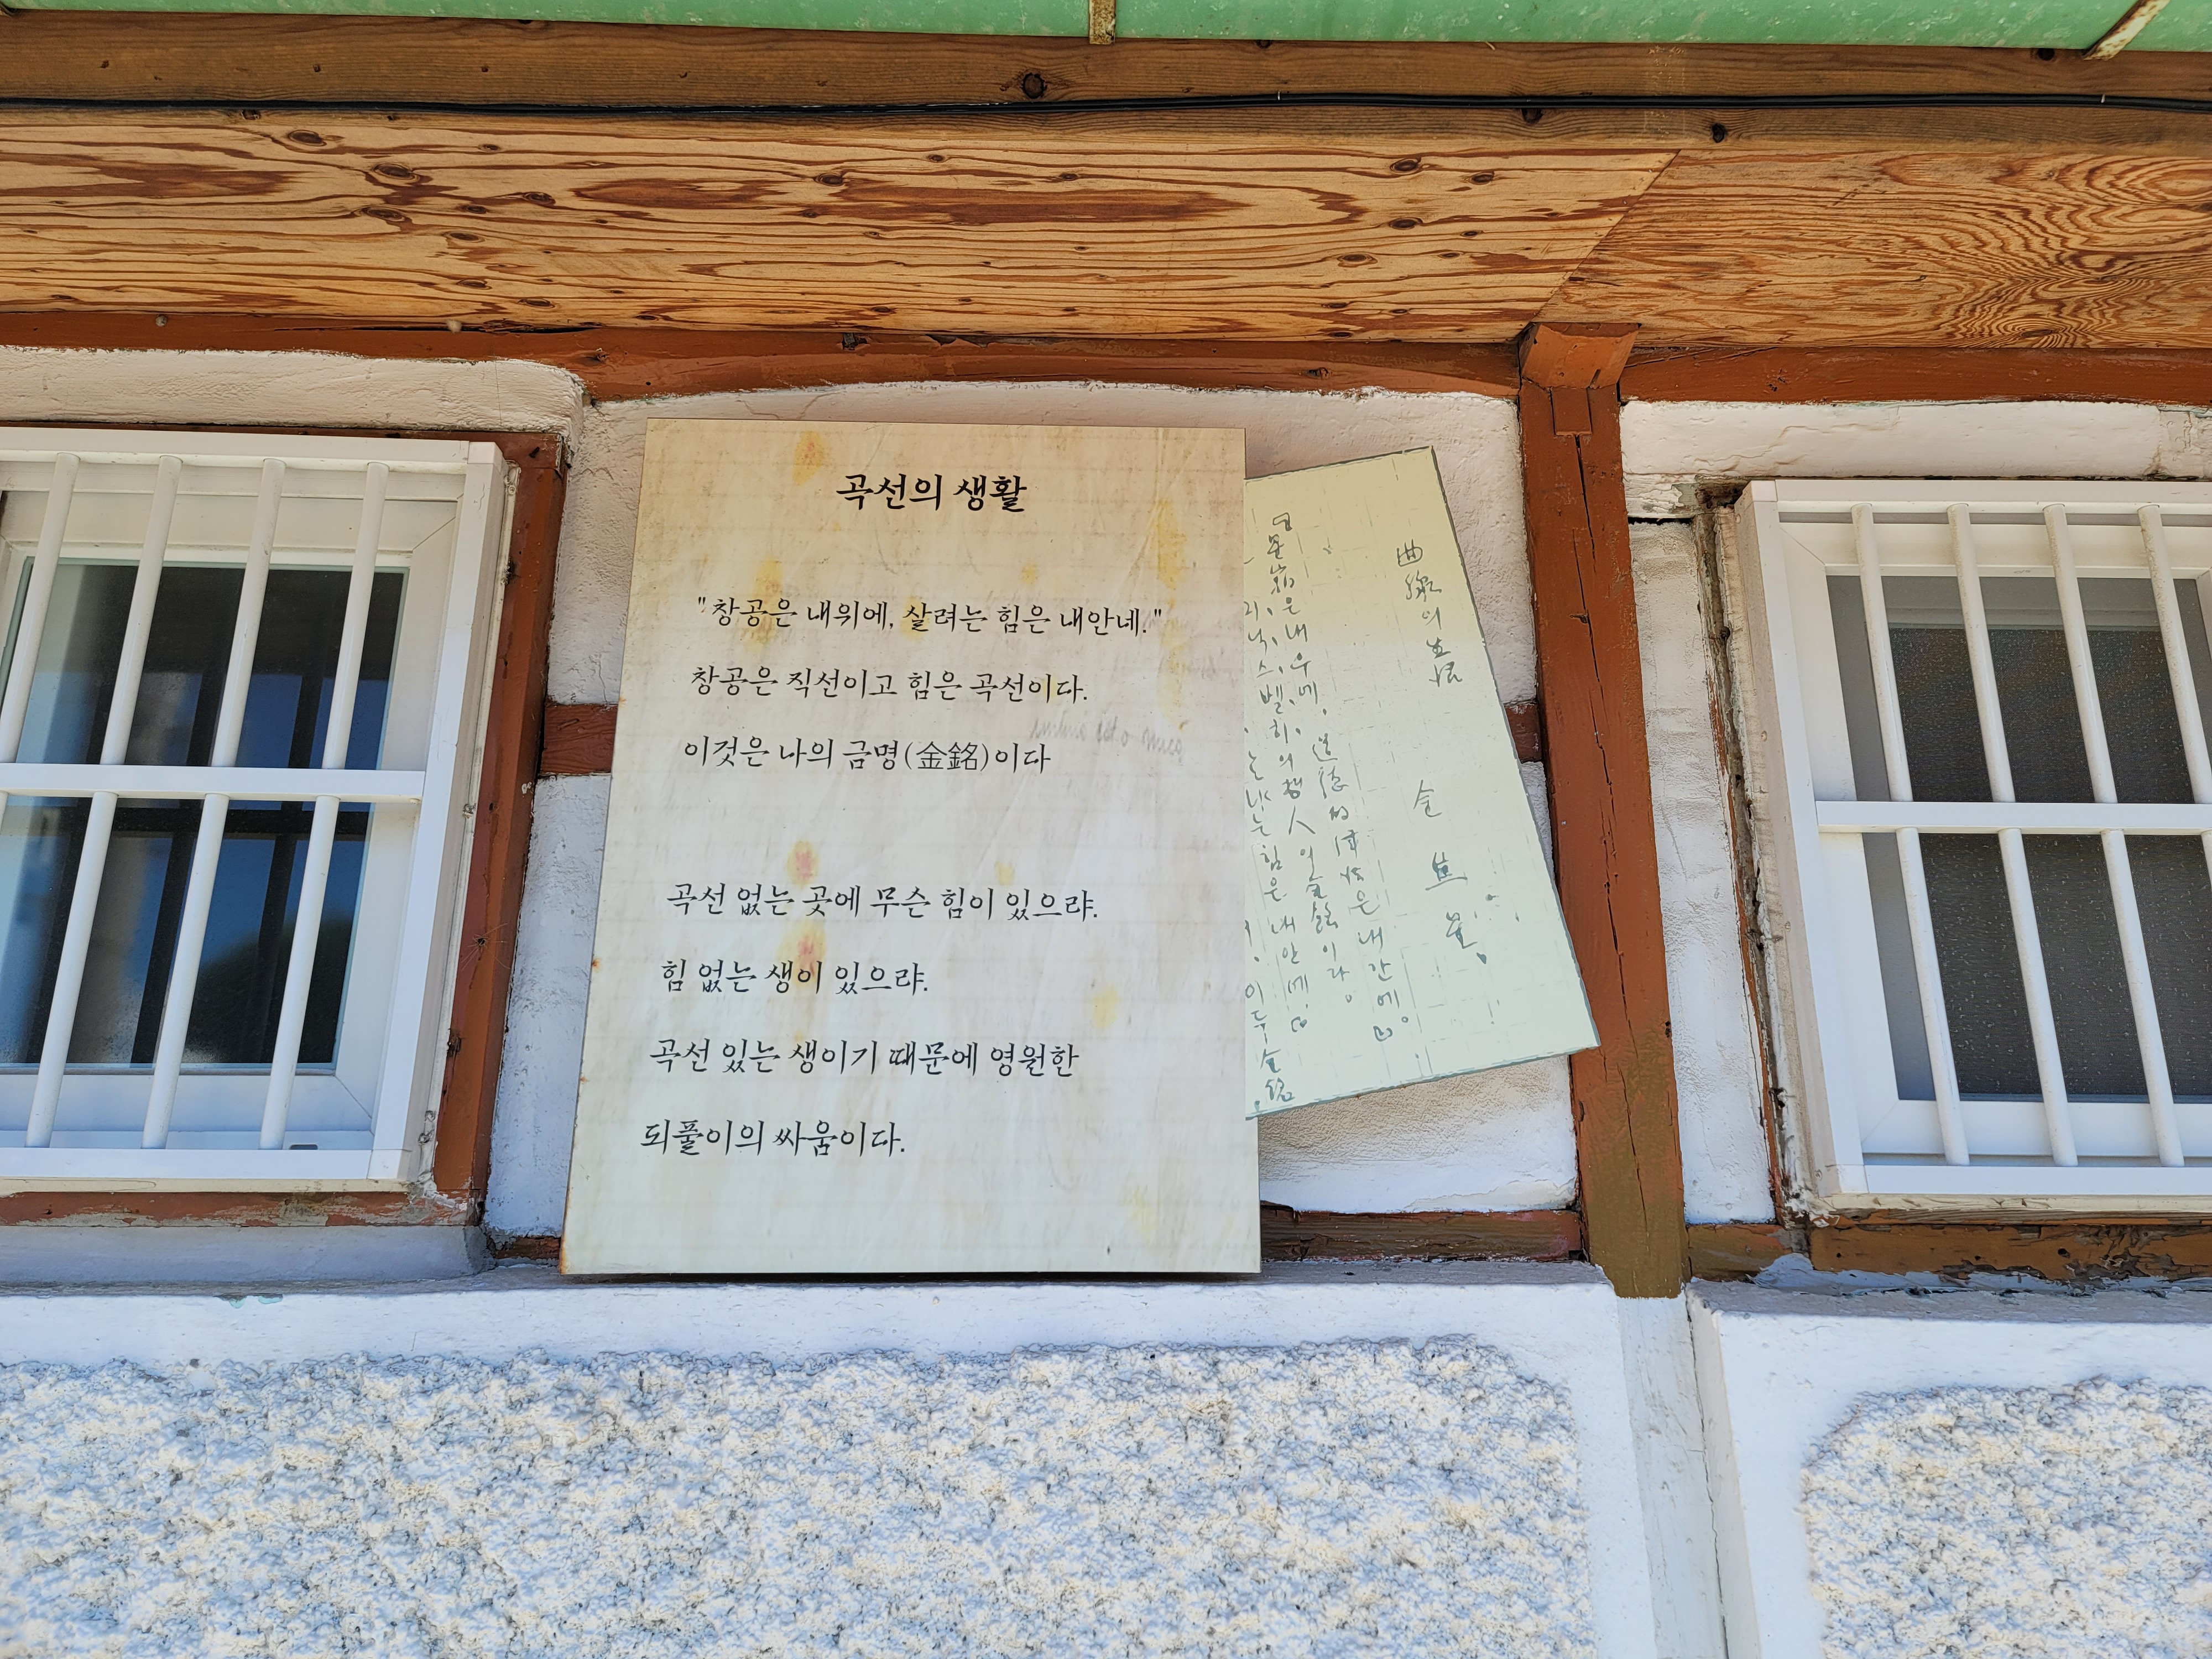 곡선의 생활
"창공은 내위에, 살려는 힘은 내안네."
창공은 직선이고 힘은 곡선이다.
이것은 나의 금명(金銘)이다
곡선 없는 곳에 무슨 힘이 있으랴.
힘 없는 생이 있으랴.
곡선 있는 생이기 때문에 영원한
되풀이의 싸움이다.
曲線의 生活
은 내 우에, 道德的 은 내 간에
의 哲人의 金銘이라
힘은 내 안네
이 두 金銘